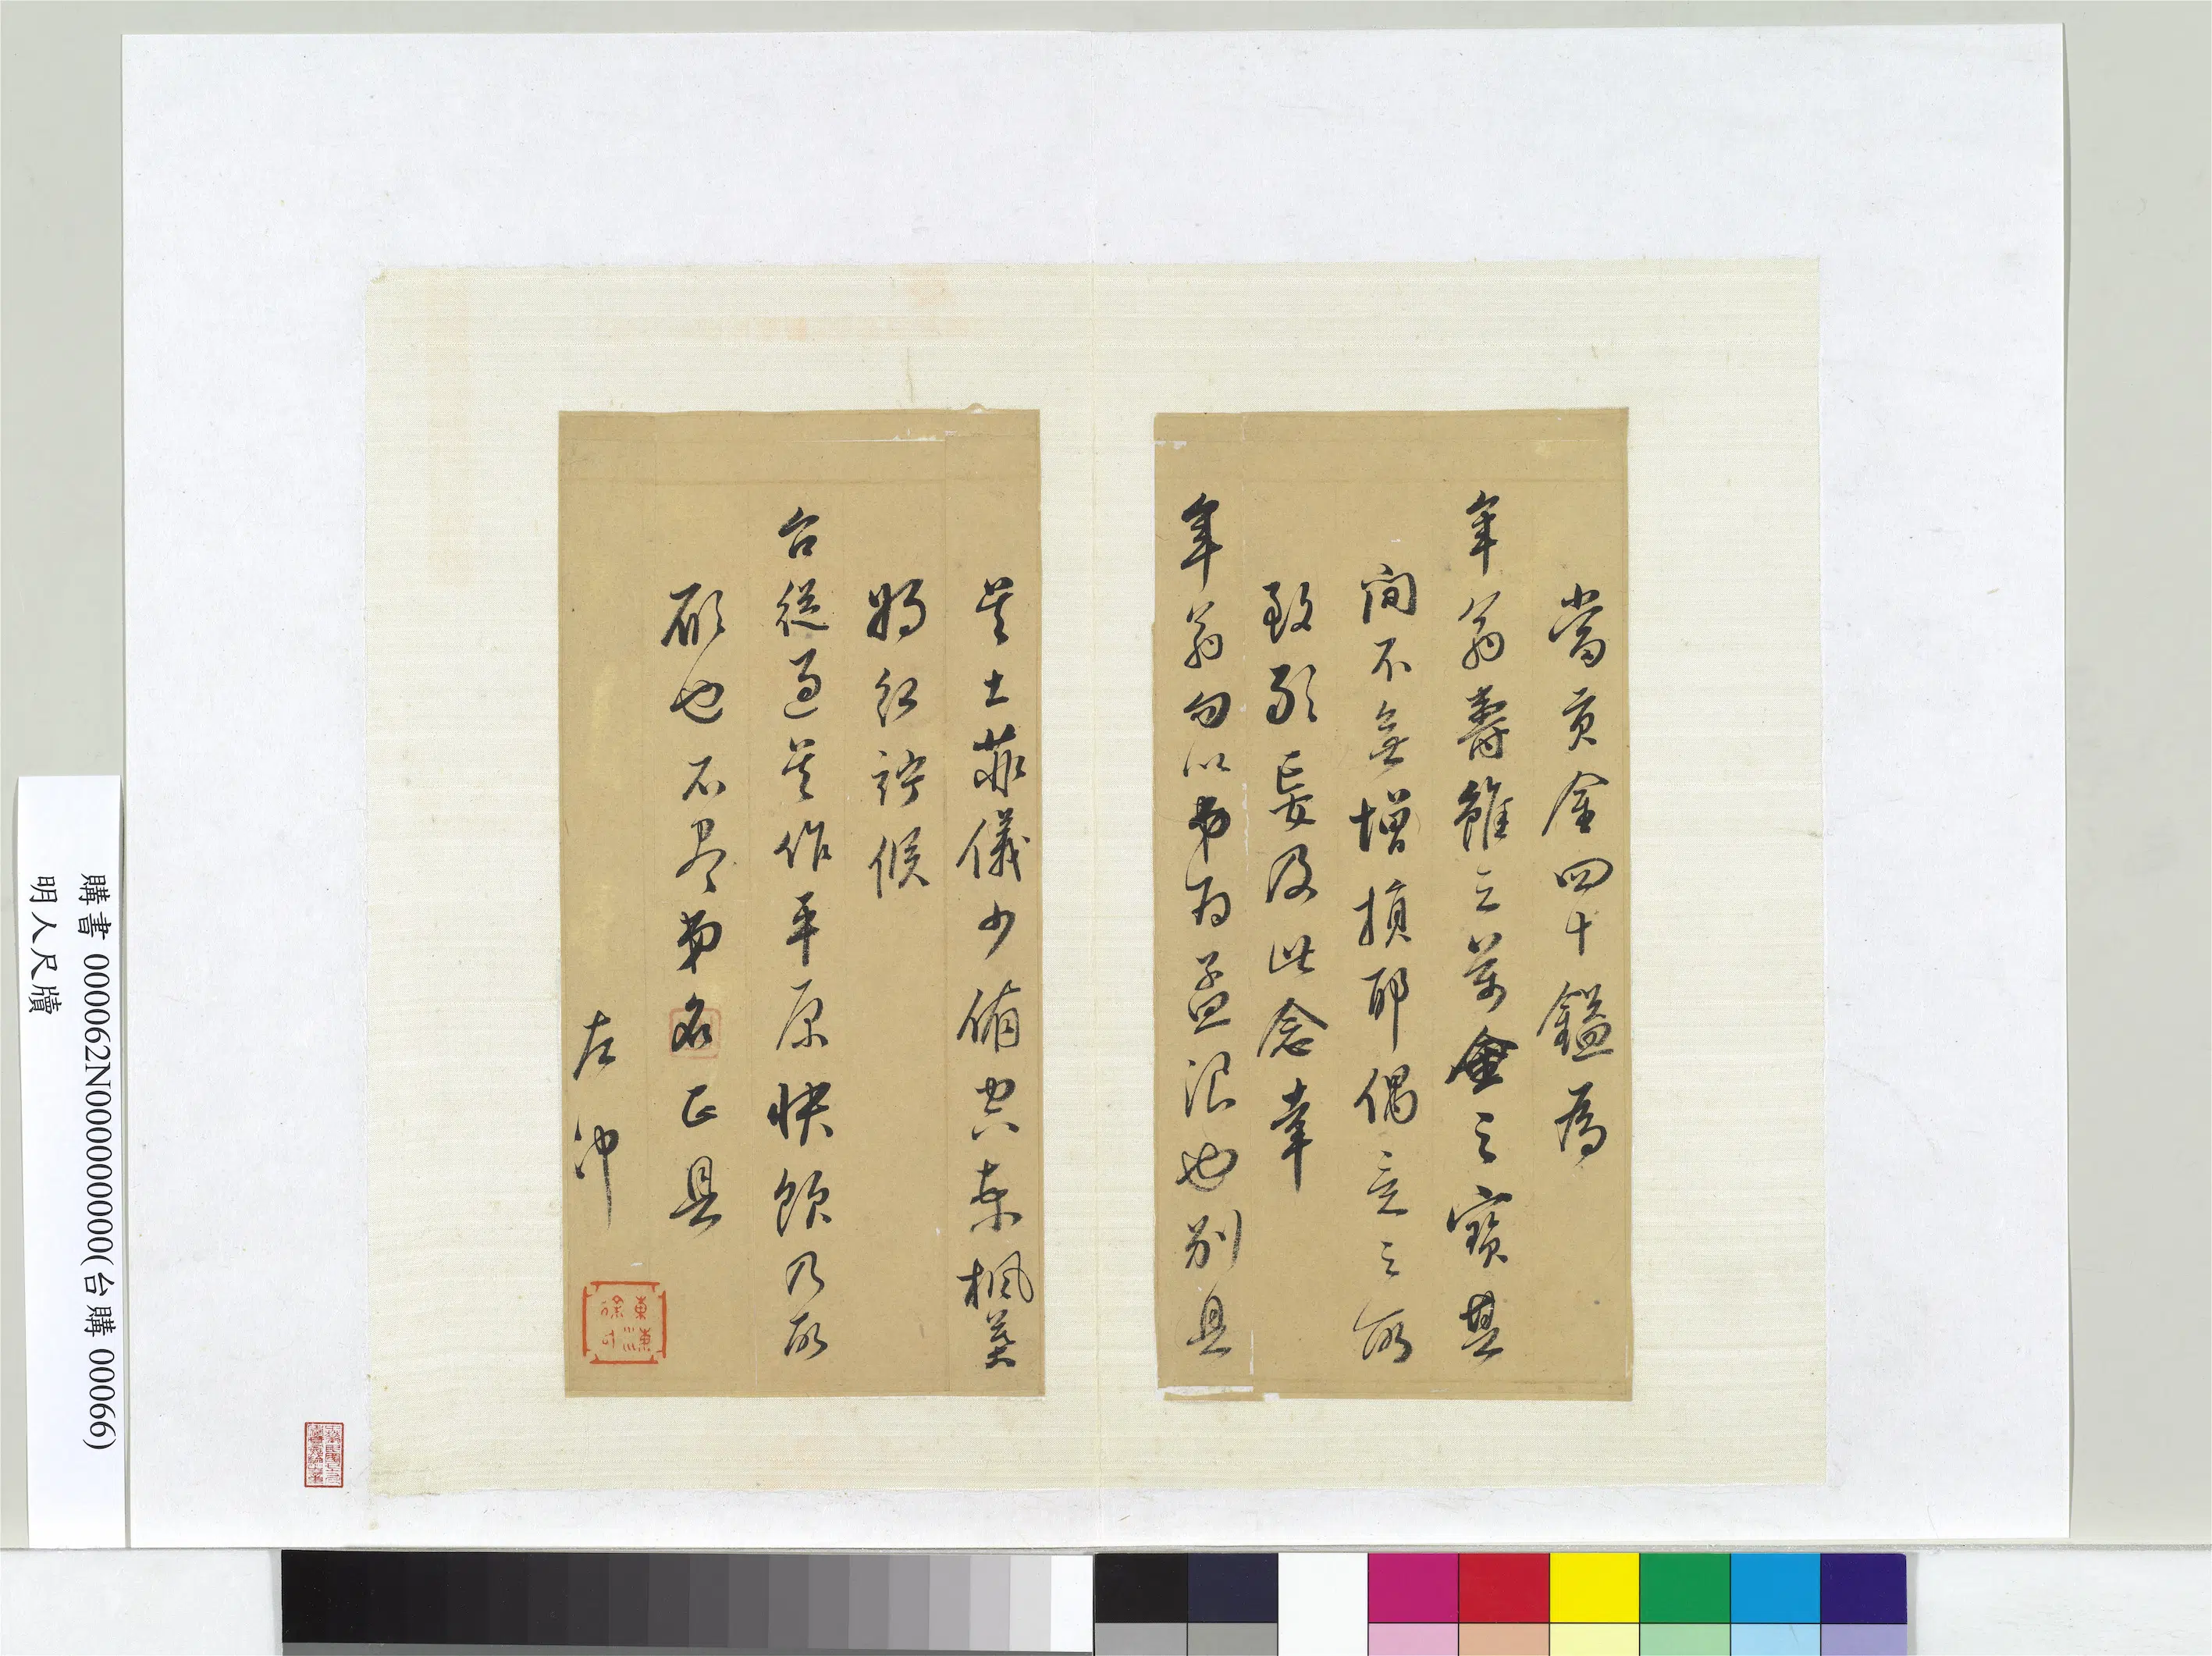 當貢金四十鎰為
年翁壽雖云萬金之寶其
間不無增損耶偶意之所
致形妄及此念幸
年翁勿以弟為孟浪也別具
吳土菲儀少備中秋楓葉
將紅竚候
台從過吳作平原快飲乃所
願也不尽弟名正具
左沖
購書 000062N000000000(台購 00066)
明人尺牘